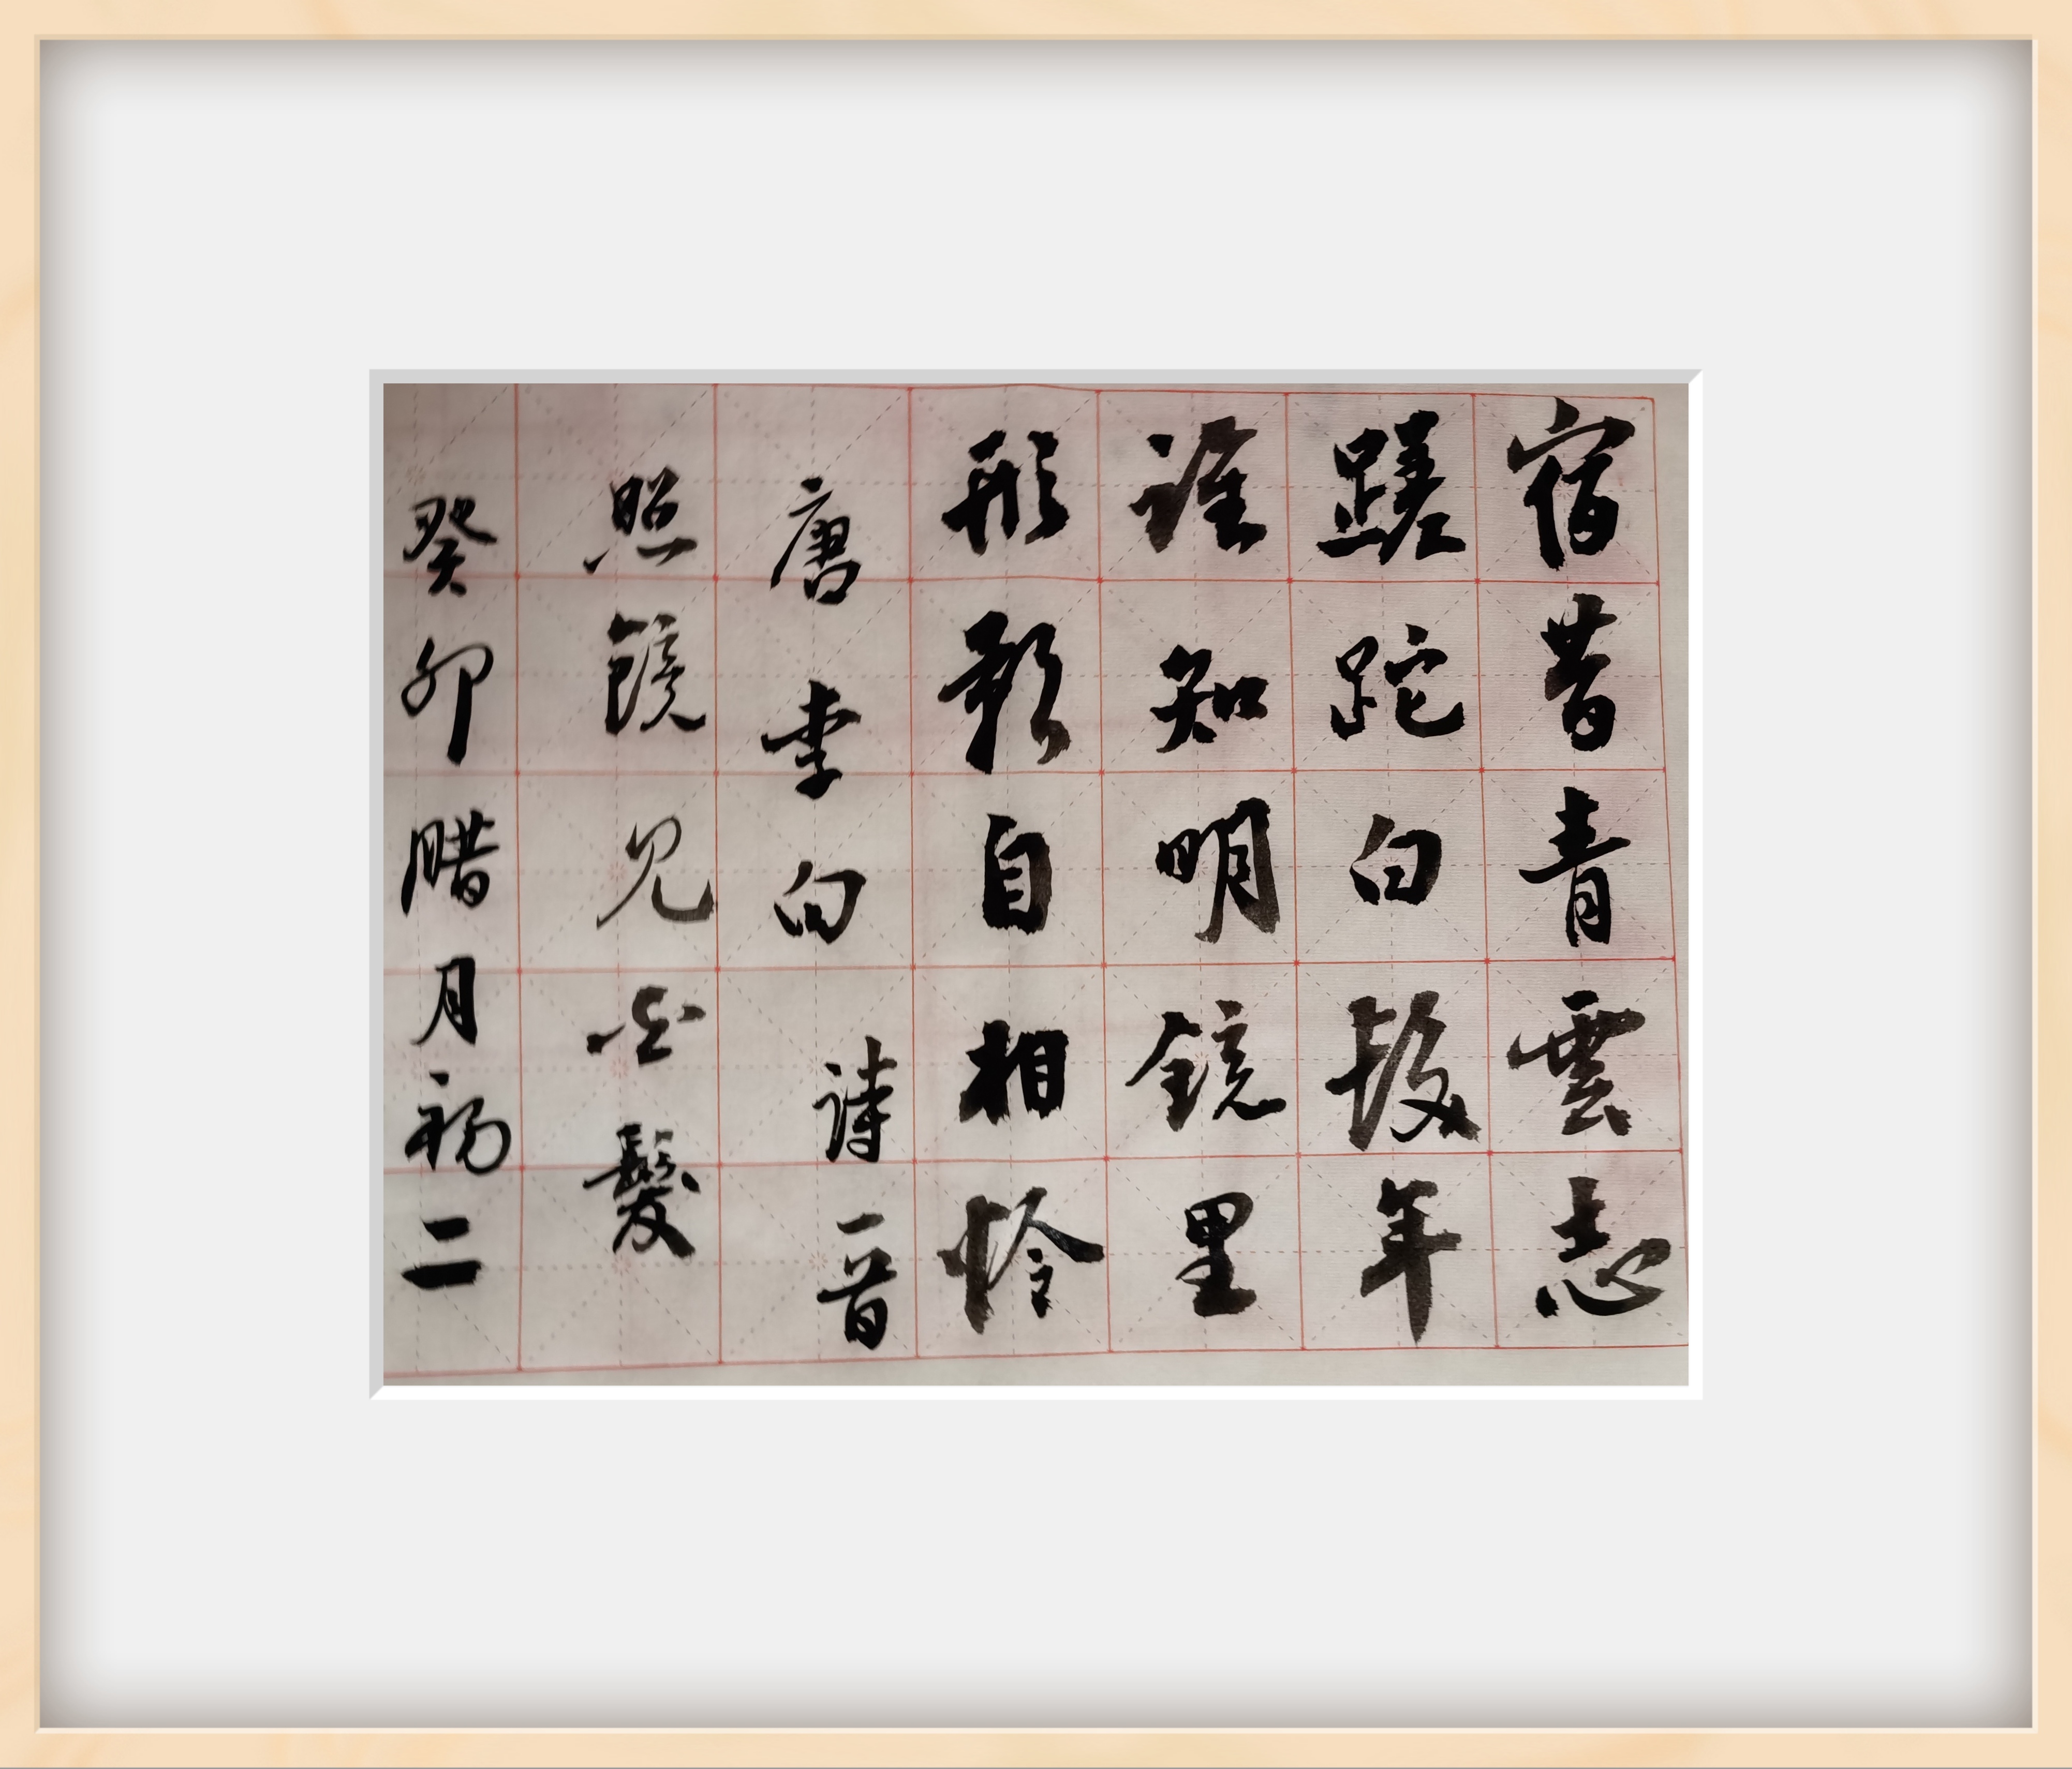 宿昔青雲志
蹉跎白髮年
誰知明鏡里
形影自相憐
唐李白詩一首
照鏡見白髮
癸卯腊月初二